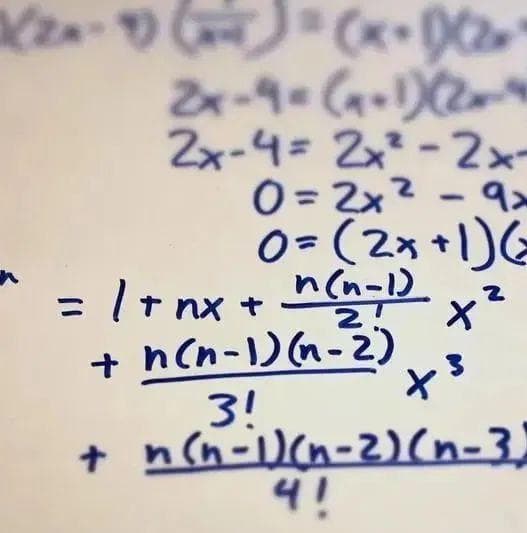 2x-9=(x+1)(2x-9
2x-4=2x²-2x-
0=2x²-9x
0=(2x+1)(x
n = 1+nx+ n(n-1)/2! x²
+ n(n-1)(n-2)/3! x³
+ n(n-1)(n-2)(n-3)/4!